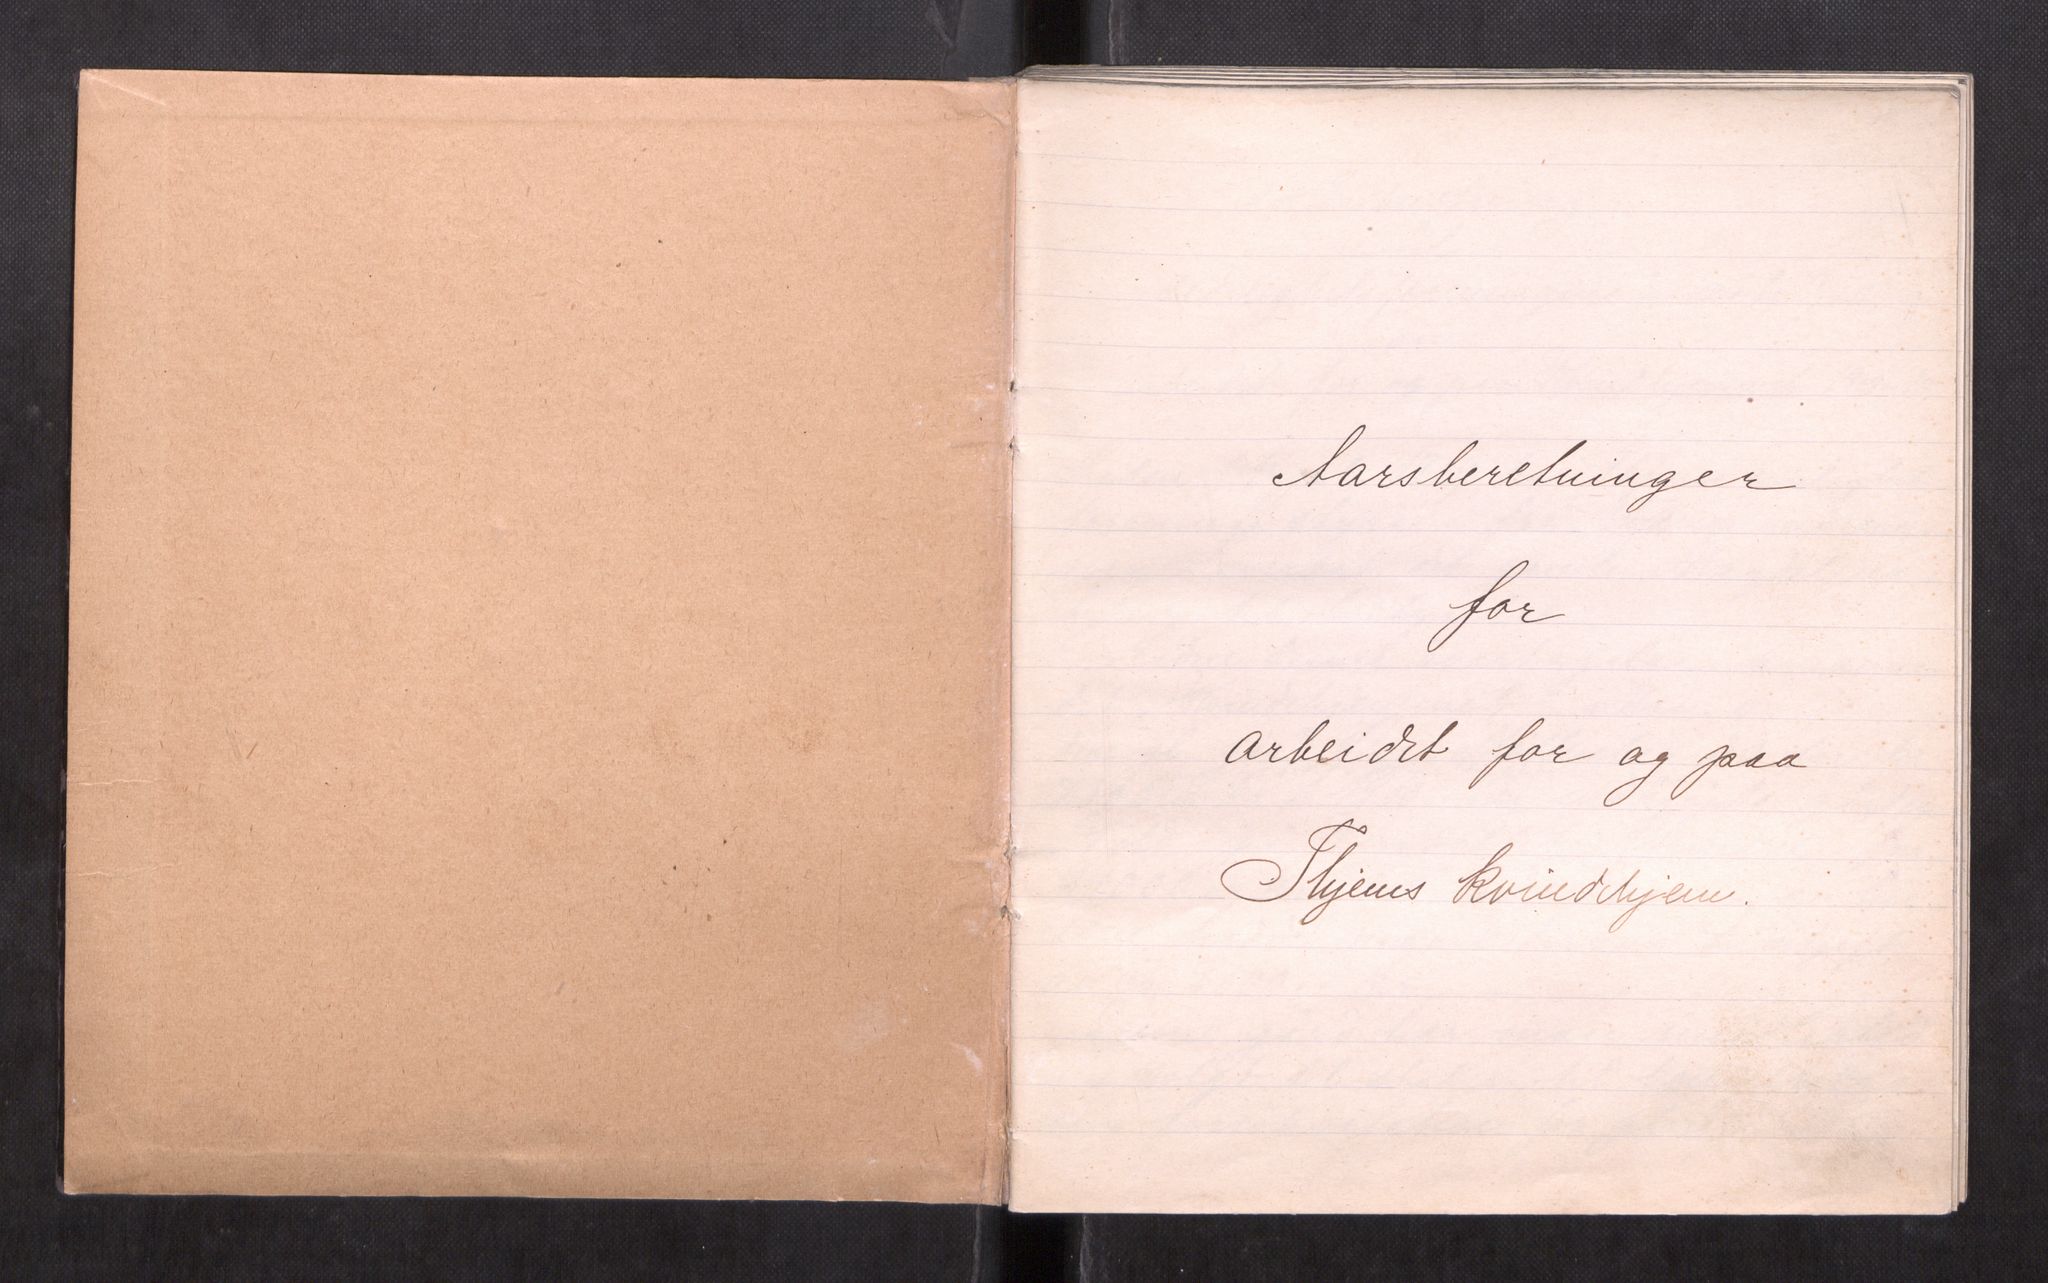 Aarsberetninger
for
arbeidet for og paa
Thjems kvindehjem.